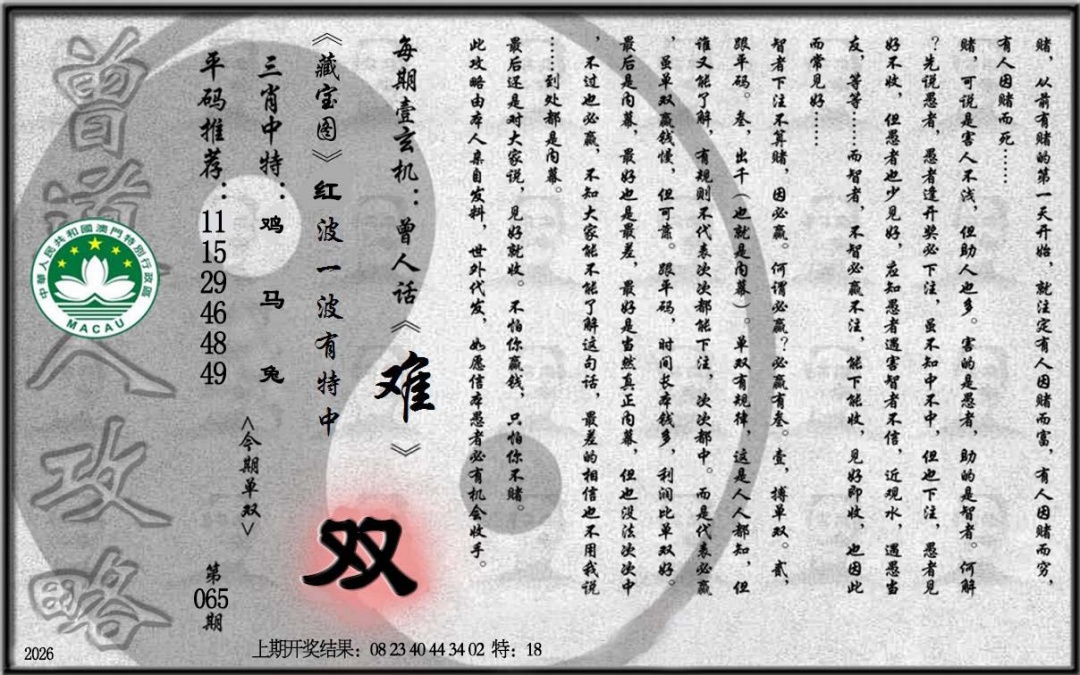 赌，从前有赌的第一天开始，就注定有人因赌而富，有人因赌而穷，
有人因赌而死……
赌，可说是害人不浅，但助人也多。害的是愚者，助的是智者。何解
？先说愚者，愚者逢开奖必下注，虽不知中不中，但也下注，愚者见
好不收，但愚者也少见好，应知愚者遇害智者不信，近观水，遇愚当
友，等等……而智者，不智必赢不注，能下能收，见好即收，也因此
而常见好……
智者下注不算赌，因必赢。何谓必赢？必赢有叁。壹，搏单双。贰，
跟平码。叁，出千（也就是内幕）。单双有规律，这是人人都知，但
谁又能了解，有规则不代表次次都能下注，次次都中。而是代表必赢
，虽单双赢钱慢，但可靠。跟平码，时间长本钱多，利润比单双好。
最后是内幕，最好也是最差，最好是当然真正内幕，但也没法次次中
，不过也必赢，不知大家能不能了解这句话，最差的相信也不用我说
……到处都是内幕。
最后还是对大家说，见好就收。不怕你赢钱，只怕你不赌。
此攻略由本人亲自发料，世外代发，如愿信本愚者必有机会收手。
每期壹玄机：曾人话《难》
《藏宝图》红波一波有特中
双
三肖中特：鸡 马 兔
<今期单双>
平码推荐：11 15 29 46 48 49
第065期
曾道人攻略
中華人民共和國澳門特別行政區
MACAU
2026
上期开奖结果：08 23 40 44 34 02 特：18